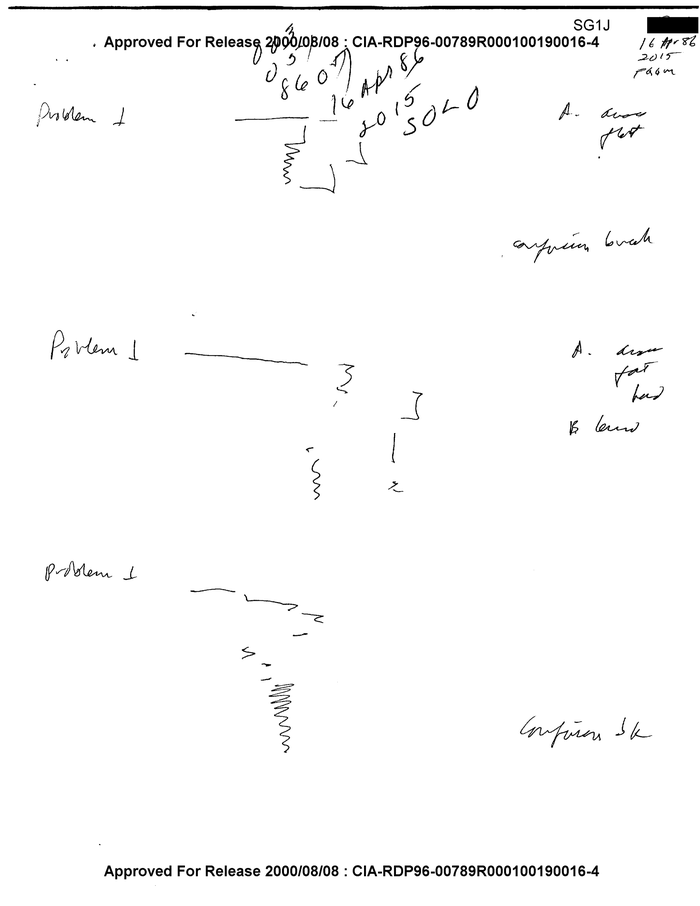 SG1J
Approved For Release 2000/08/08 : CIA-RDP96-00789R000100190016-4
16 Apr 86
2015
16 Apr 86
2015
SOLO
Problem 1
A.
flat
confusion break
Problem 1
A.
hard
B land
Problem 1
Confusion bk
Approved For Release 2000/08/08 : CIA-RDP96-00789R000100190016-4